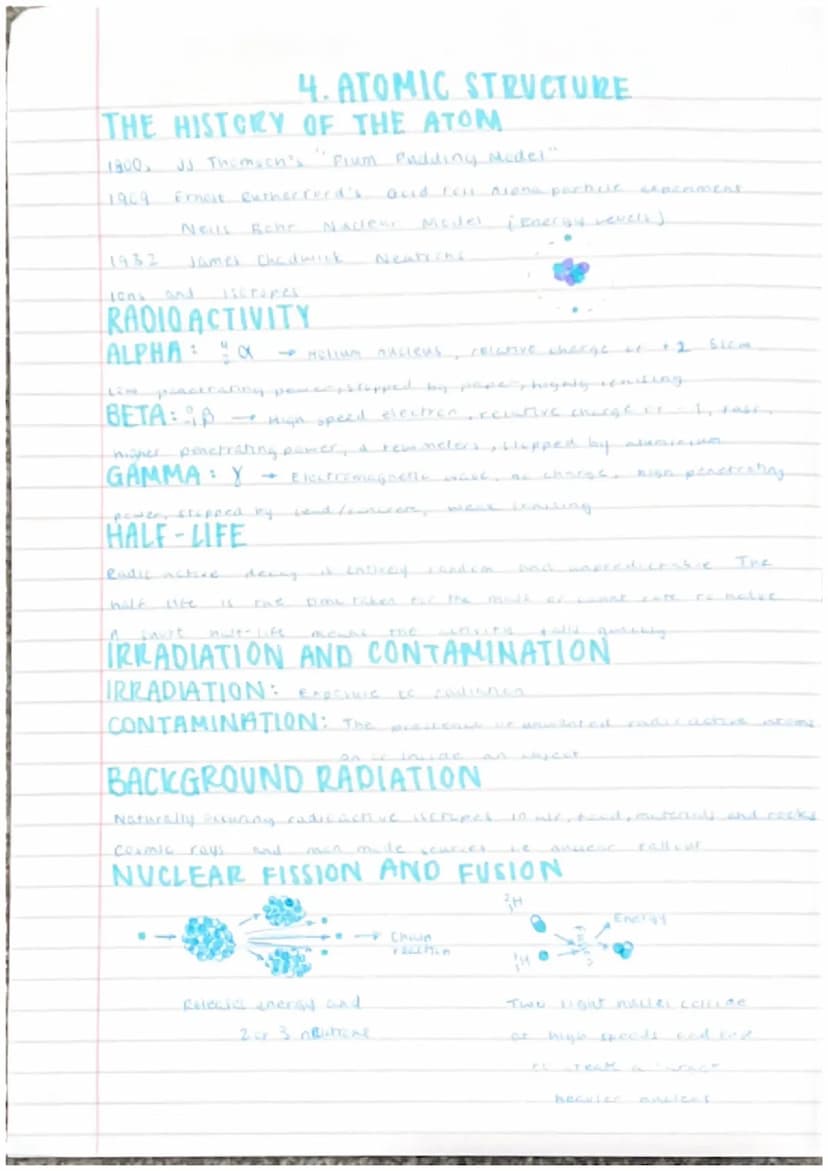 4. ATOMIC STRUCTURE
THE HISTORY OF THE ATOM
JJ Thomson's "Plum Pudding Model"
Ernest Rutherford's alpha particle experiment
Neils Bohr Nuclear Model (Energy levels)
1932 James Chadwick Neutrons
Ions and isotopes
RADIOACTIVITY
ALPHA: 4 2 α → Helium nucleus, relative charge of +2 slow
low penetrating power, stopped by paper, highly ionising
BETA: 0 -1 β → High speed electron, relative charge of -1, fast,
higher penetrating power, a few meters, stopped by aluminium
GAMMA: γ → Electromagnetic wave, no charge, high penetrating
power, stopped by lead/, weak ionising
HALF-LIFE
Radioactive decay is entirely random and unpredictable The
half life is the time taken for the count rate to halve
A short half-life means the activity falls quickly
IRRADIATION AND CONTAMINATION
IRRADIATION: Exposure to radiation
CONTAMINATION: The presence of unwanted radioactive atoms
on or inside an object
BACKGROUND RADIATION
Naturally occuring radioactive isotopes in air, food, materials and rocks
Cosmic rays and man made sources ie nuclear fallout
NUCLEAR FISSION AND FUSION
2 1 H
Energy
Chain
reaction
1 1 H
Releases energy and
2 or 3 neutrons
Two light nuclei collide
at high speeds and
to create a
heavier nucleus